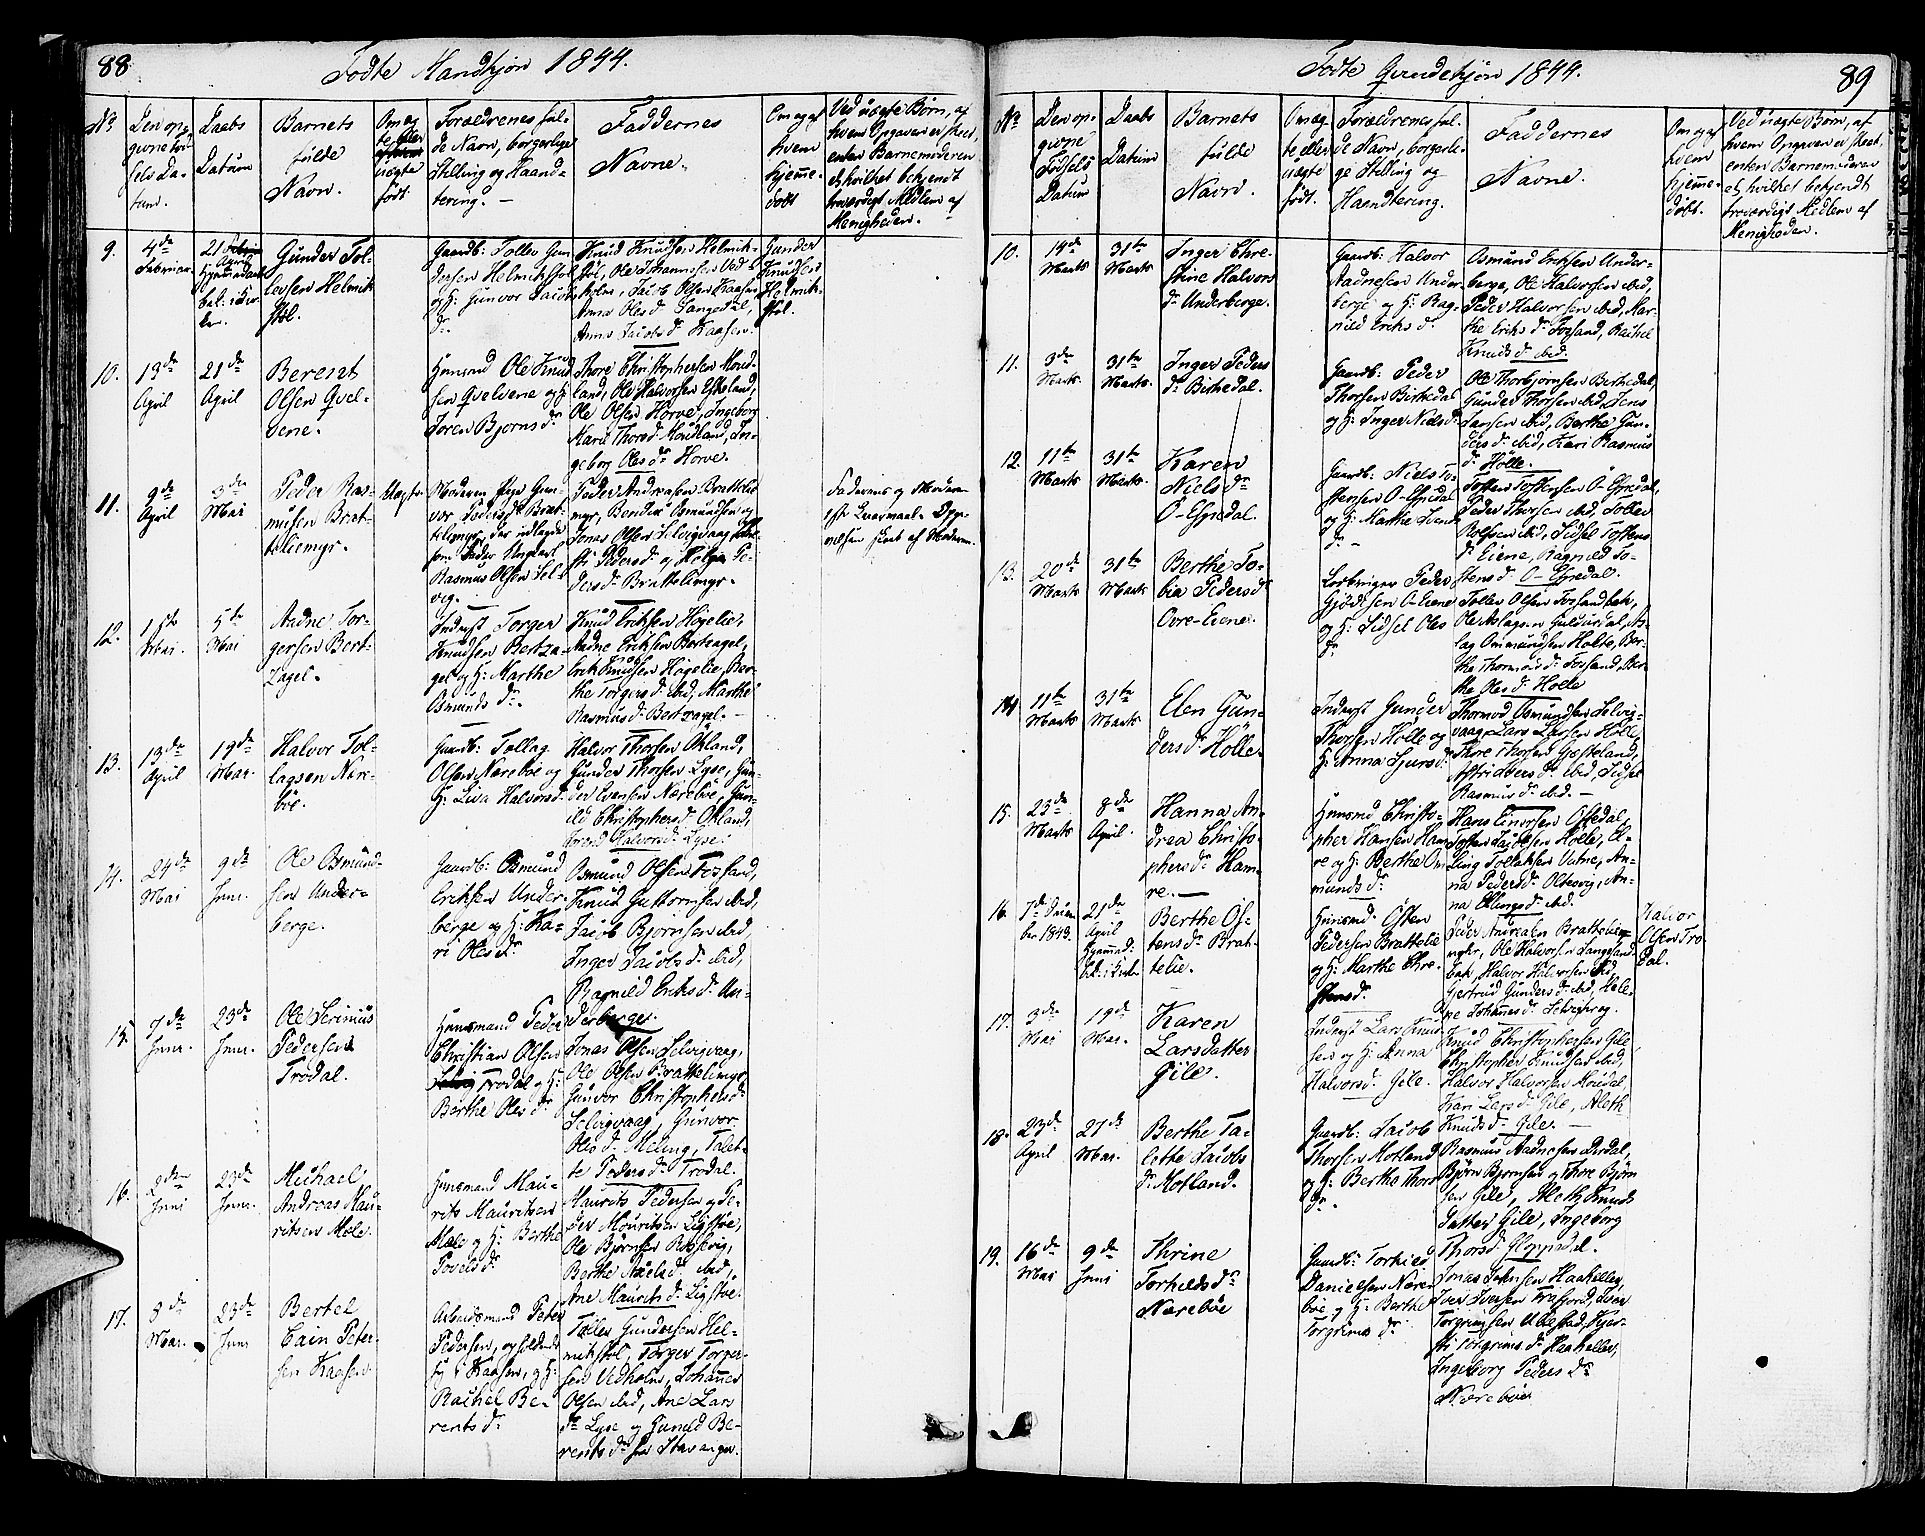 88
Fodte Mandkjøn 1844.
No
Den op-
givne fød-
sels Da-
tum.
Daabs
Datum
Barnets
fulde
Navn.
Om æg-
te eller
uægte
født
Forældrenes ful-
de Navn, borgerlige
Stilling og Haand-
tering. –
Faddernes
Navne.
Om og af
hvem
hjemme-
døbt
Ved uægte Børn, af
hvem Opgaven er skeet,
enten Barnemoderen
el. hvilket bekjendt
troværdigt Medlem af
Menigheden.
9.
4de
Februar.
21
April
Hjemmedøbt
Gunder Tol-
levsen Helmik-
støl.
Gaardb: Tollev Gun-
dersen Helmikstøl
og H: Gunvor Jacobs
dr.
Knud Knudsen Helmik-
støl, Ole Johannesen Ved-
holm, Jacob Olsen Kaasen,
Anna Olesd. Sangedal,
Anna Jacobsd. Kaasen.
Gunder
Knudsen
Helmik-
støl.
10.
13de
April
21de
April
Berent
Olsen Qvel-
vene.
Huusmd Ole Knud
sen Qvelvene og H:
Joren Bjørnsdr
Thore Christophersen Moud-
land, Ole Halvorsen Eskeland,
Ole Olsen Horve, Ingeborg
Marie Thorsd. Moudland, In-
geborg Olesdr Horve.
11.
9de
April
3de
Mai
Peder Ras-
musen Brat-
teliemyr.
Uægte.
Moderen Pige Gun-
vor Pedersdr Brat-
teliemyr, der udlagde
som Fader Ungkarl
Rasmus Olsen Sel-
vig.
Peder Andreasen Brattelie
myr, Bendix Osmundsen og
Jonas Olsen Selvigvaag,
Pedersd. og Helga Pe-
dersdr Brattelimyr.
Faderens og Moderen
1ste Leiermaal. Opgi-
velsen skeet af Moderen.
12.
1ste
Mai.
5te
Mai
Aadne Tor-
gersen Bert-
zagel.
Inderst Torger
Knudsen Bertza-
gel og H: Marthe
Osmundsdr.
Knud Eriksen Høgelie,
Aadne Eriksen Bertzagel,
Erik Knudsen Høgelie, Ber-
the Torgersd. ibid, Marthe
Rasmusd. Bertzagel. –
13.
13de
April
19de
Mai.
Halvor Tol-
lagsen Nære-
bøe.
Gaardb: Tollag
Olsen Nærebøe og
H: Liva Halvorsd.
Halvor Thorsen Økland,
Gunder Thorsen Lyse, Gun-
der Evensen Nærebøe, Gun-
ild Christophersd. Økland,
Halvorsd. Lyse.
14.
24de
Mai
9de
Juni.
Ole Osmund-
sen Under-
berge.
Gaardb: Osmund
Eriksen Under-
berge og H: Ka-
ri Olesdr
Osmund Olsen Fossand,
Knud Guttormsen ibid,
Jacob Bjørnsen ibid,
Inger Jacobsd. ibid,
Ragnild Eriksd. Un-
derberge.
15.
7de
Juni.
23de
Juni.
Ole Serinius
Pedersen
Trodal.
Huusmand Peder
Christian Olsen
Trodal og H:
Berthe Olesdr
Jonas Olsen Selvigvaag,
Ole Olsen Brattelimyr,
Gunvor Christophersd.
Selvigvaag, Gunvor
Olesd. Meling, Talet-
te Pedersd. Trodal.
16.
2den
Juni
23de
Juni.
Michael
Andreas Mau-
ritsen Mæle.
Huusmand Mau-
rits Mauritsen
Mæle og H: Berthe
Povelsdr
Maurits Pedersen og Pe-
der Mouritsen Ligstøe,
Ole Bjørnsen Rossevig,
Berthe Axelsd. ibid,
Ane Mauritsd. Ligstøe.
17.
8de
Mai.
23de
Juni
Bertel
Cain Peter-
sen Kaasen
Arbeidsmand Peter
Pedersen, opholdende
sig i Kaasen, og H:
Rachel Be-
rentsdr
Tollev Gundersen Hel-
mikstøl, Torger Torger-
sen Vedholm, Johannes
Olsen ibid, Ane Lars
dr Lyse og Gunild Be-
rentsdr fra Stavanger.
Fødte Qvindekjøn 1844.
89
No
Den op-
givne
Fødsels
Datum
Daabs
Datum
Barnets
fulde
Navn.
Om æg-
te eller
uægte
født.
Forældrenes ful-
de Navn, borgerli-
ge Stilling og
Haandtering.
Faddernes
Navne.
Om og af
hvem
hjemme-
døbt.
Ved uægte Børn, af
hvem Opgaven er skeet,
enten Barnemoderen
el. hvilket bekjendt
troværdigt Medlem af
Menigheden.
10.
14de
Marts
31te
Marts
Inger Chre-
stine Halvors
dr Underberge.
Gaardb: Halvor
Aadnesen Under-
berge og H: Rag-
nild Eriksdr.
Osmund Eriksen Under-
berge, Ole Halvorsen ibid,
Peder Halvorsen ibid, Mar-
the Eriksdr Fossand, Rachel
Knudsd. ibid.
11.
3de
Marts.
31te
Marts.
Inger Peders
dr Birkedal.
Gaardb: Peder
Thorsen Birkedal
og H: Inger Nielsdr
Ole Thorbjørnsen Birkedal,
Gunder Thorsen ibid, Jens
Jansen ibid, Berthe Gun-
dersd. ibid, Kari Rasmus
dr Hølle.
12.
11te
Marts
31te
Marts.
Karen
Nielsdr
O-Espedal.
Gaardb: Niels To-
stensen O-Espedal
og H: Marthe Svends
dr –
Tosten Tostensen O-Espedal,
Peder Thorsen ibid, Tollev
Roelsen ibid, Sidsel Tostens
dr Eiene, Ragnild To-
stensd. O-Espedal.
13.
20de
Marts
31te
Marts
Berthe To-
bia Pedersdr
Øvre-Eiene.
Peder
Gjødesen O-Eiene
og H: Sidsel Oles
dr
Tollev Olsen Fossandbak,
Ole Aslagsen Guldsidal, As-
lag Ommundsen Holte, Ber-
the Thormodsdr Fossand, Ber-
the Olesd. Holle
14
11te
Marts
31te
Marts
Elen Gun-
dersd. Hølle.
Inderst Gunder
Thorsen Hølle og
H: Anna Sjursdr
Thormod Osmundsen Selvig-
vaag, Lars Larsen Hølle,
Thore Thorsen Gjesteland,
Astrid Iversdr ibid, Sidsel
Rasmusdr ibid. –
15.
23de
Marts
8de
April.
Hanna An-
drea Christo-
phersdr Ham-
re. –
Huusmd Christo-
pher Hansen Ham
re og H: Berthe Om
mundsdr
Hans Einersen Oftedal,
Tosten Larsen Hølle, El-
ling Tollaksen Vatne, An-
na Pedersdr Oltesvig, An-
na Ellingsd. ibid.
16.
7de Decem
ber 1843.
21de
April
Hjemmed:
Berthe Øs-
tensd. Brat-
telie.
Huusmd. Østen
Pedersen Brattelie
og H: Marthe Chre-
stensd.
Peder Andreasen Brattelie-
myr, Ole Halvorsen Langesand-
bak, Halvor Halvorsen ibid,
Gjertrud Gundersdr ibid, Hele-
ne Johannesd. Selvigvaag.
Halvor
Olsen Tro-
dal.
17.
3de
Mai
19de
Mai.
Karen
Larsdatter
Gile.
Inderst Lars Knud
sen og H: Anna
Halvorsd. Gile.
Knud Christophersen Gile
Christopher Knudsen ibid,
Halvor Halvorsen Moudal,
Kari Larsdr Gile, Aleth
Knudsdr Gile. –
18.
23de
April
27de
Mai.
Berthe Ta-
lethe Jacobs
dr Motland.
Gaardb: Jacob
Thorsen Motland
og H: Berthe Thors
dr.
Rasmus Aadnesen Dirdal,
Bjørn Bjørnsen og Thore Bjørn
sen Gile, Aleth Knuds
datter Gile, Ingeborg
Thorsd. Gloppedal.
19.
16de
Mai
9de
Juni
Thrine
Torkildsdr
Nærebøe
Gaardb: Torkild
Danielsen Næreː
bøe og H: Berthe
Torgrimsdr
Jonas Johnsen Haahellen,
Iver Iversen Frafjord, Iver
Torgrimsen Ubostad, Kjer-
sti Torgrimsdr Haahellen,
Ingeborg Pedersdr
Nærebøe